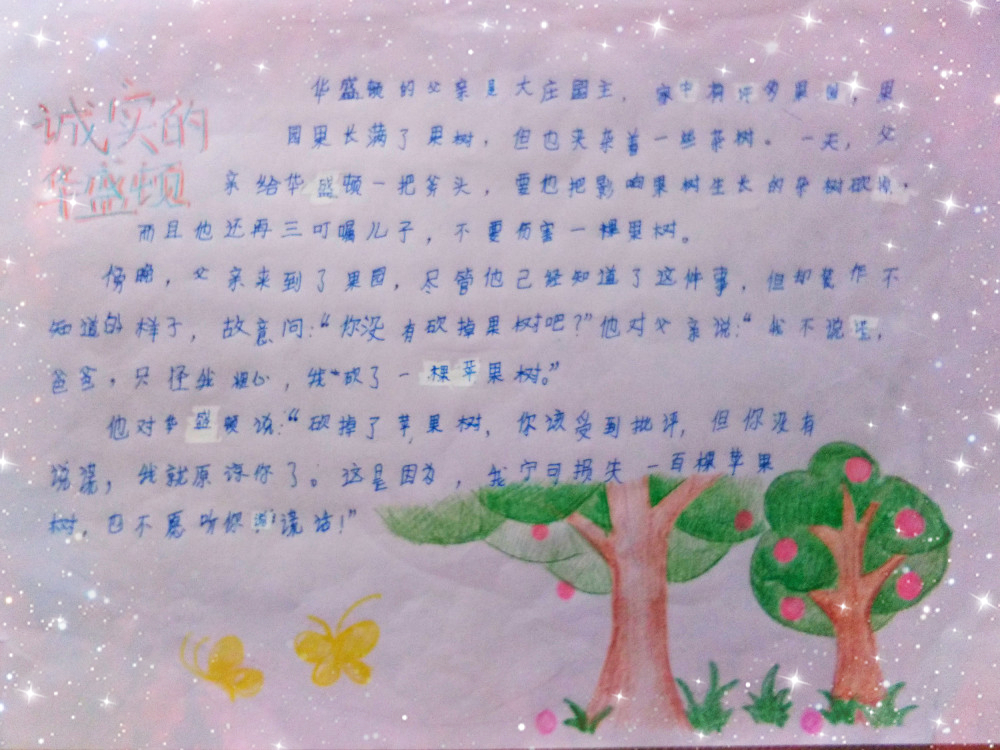 诚实的
华盛顿
华盛顿的父亲是大庄园主，家中有许多果园，果
园果长满了果树，但也夹杂着一些杂树。一天，父
亲给华盛顿一把斧头，要他把影响果树生长的杂树砍掉，
而且他还再三叮嘱儿子，不要伤害一棵果树。
傍晚，父亲来到了果园，尽管他已经知道了这件事，但却装作不
知道的样子，故意问：“你没有砍掉果树吧？”他对父亲说：“我不说谎，
爸爸，只怪我粗心，我砍了一棵苹果树。”
他对华盛顿说：“砍掉了苹果树，你该受到批评，但你没有
说谎，我就原谅你了。这是因为，我宁可损失一百棵苹果
树，也不愿听你说谎话！”